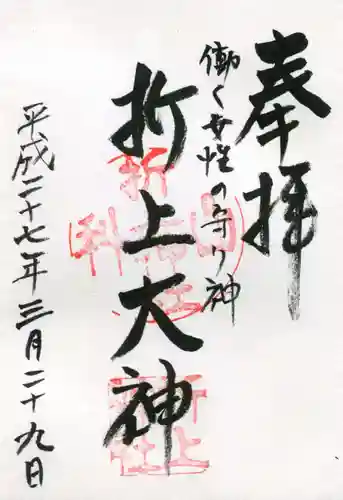 奉拝
働く女性の守り神
折上大神
平成二十七年三月二十九日
山科
折上神社